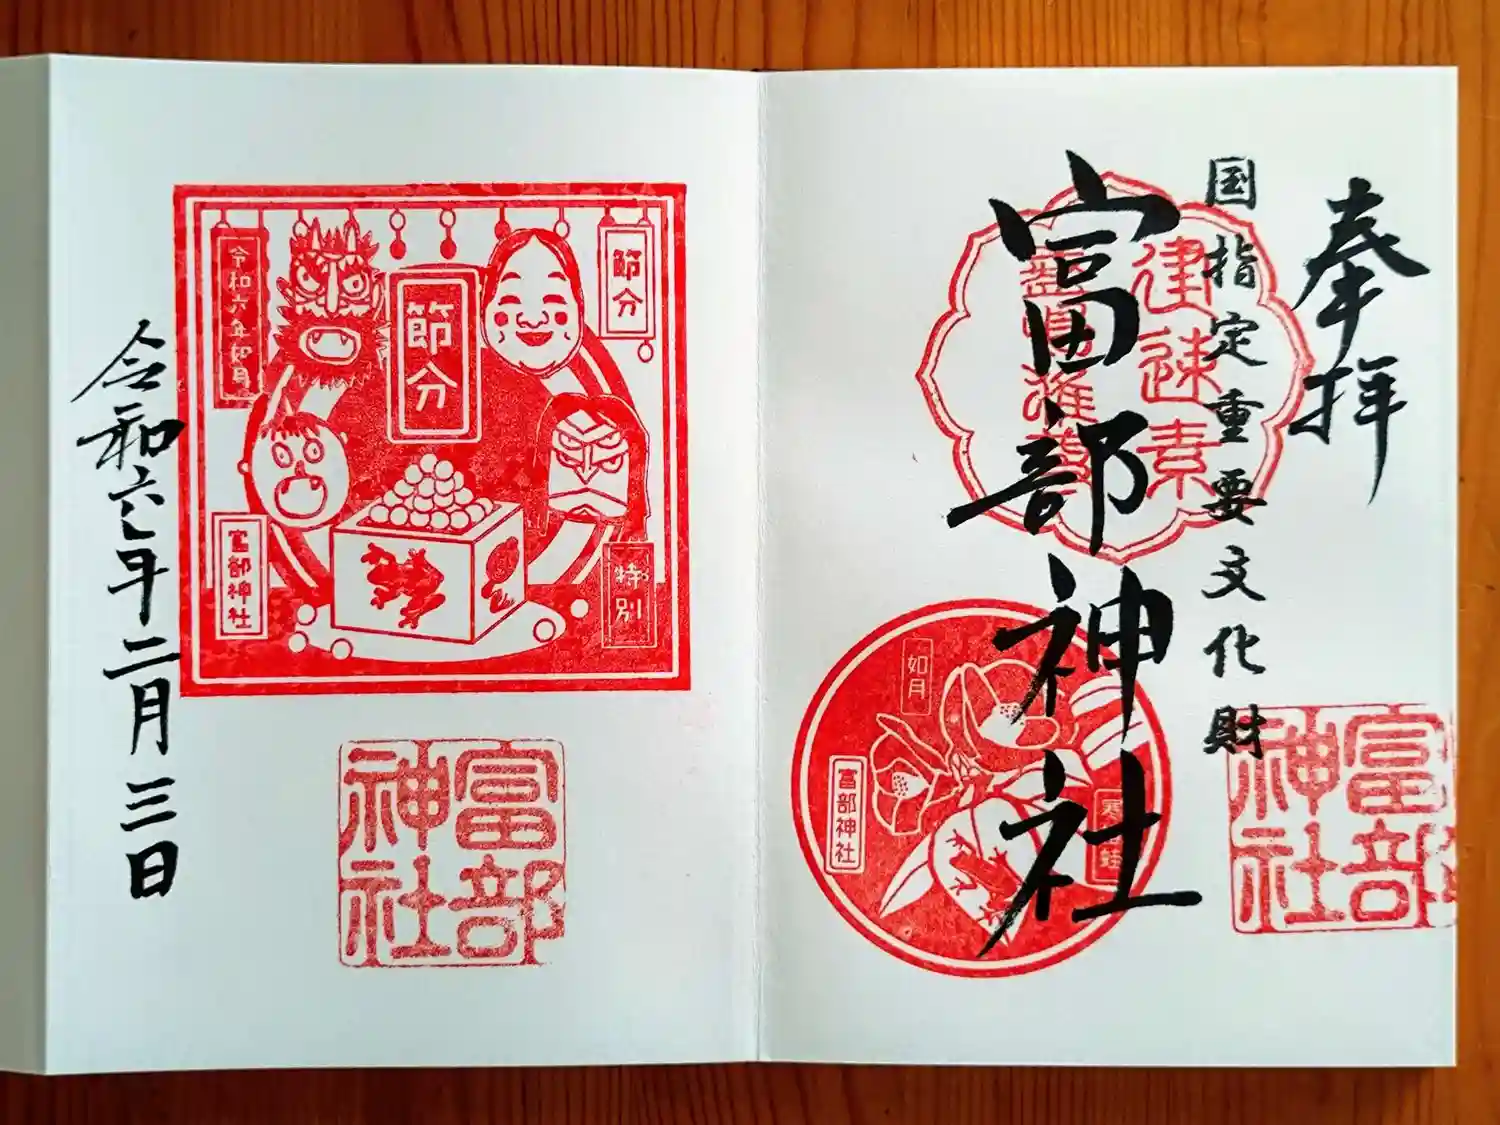 奉拝
国指定重要文化財
富部神社
建速素
富部
神社
如月
富部神社
節分
節分
令和六年如月
特別
富部神社
富部
神社
令和六年二月三日